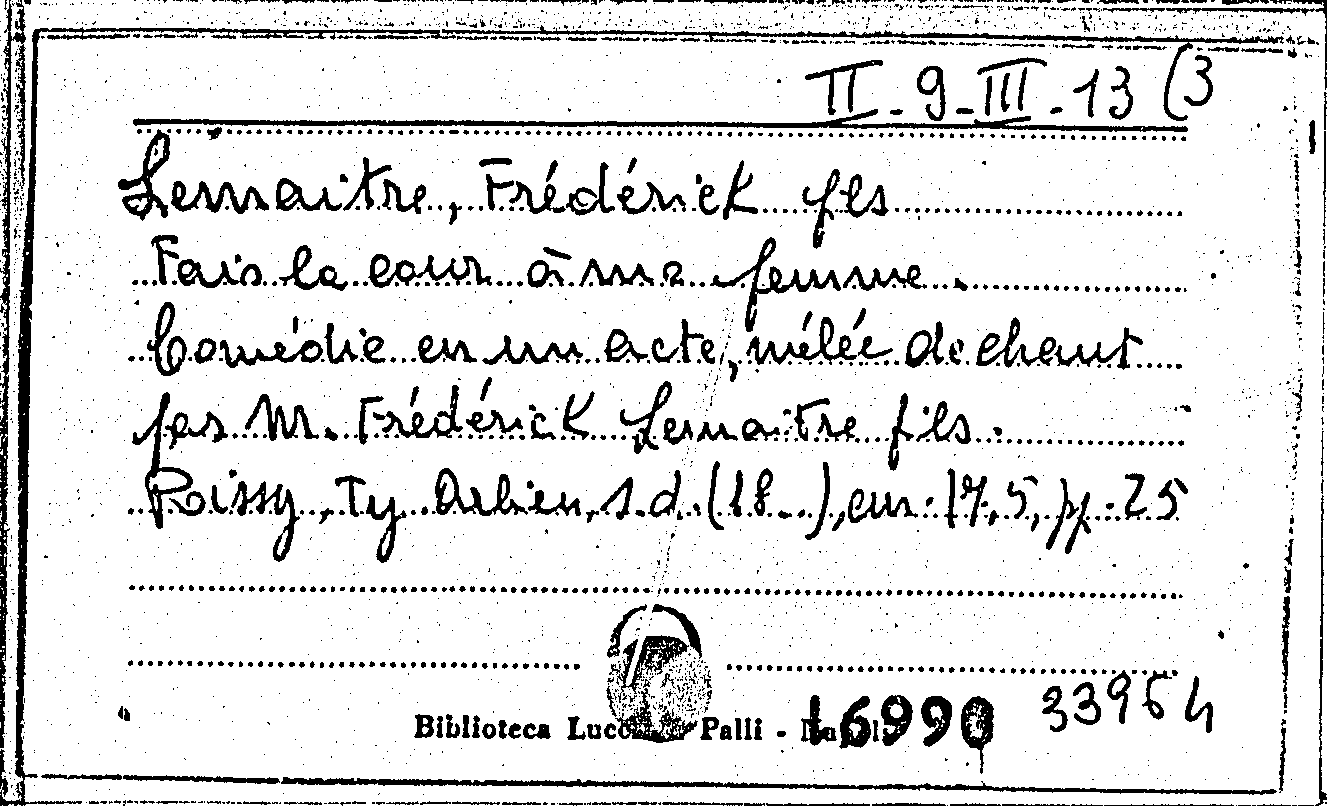 II-9-III-13 (3
Lemaitre, Frédérick fils
Fais la cour à ma femme.
Comédie en un acte, mêlée de chant
par M. Frédérick Lemaitre fils.
Poissy, Ty. Arbieu, s.d. (18..), cm. 17,5, pp. 25
Biblioteca Lucc Palli -
16990 33954